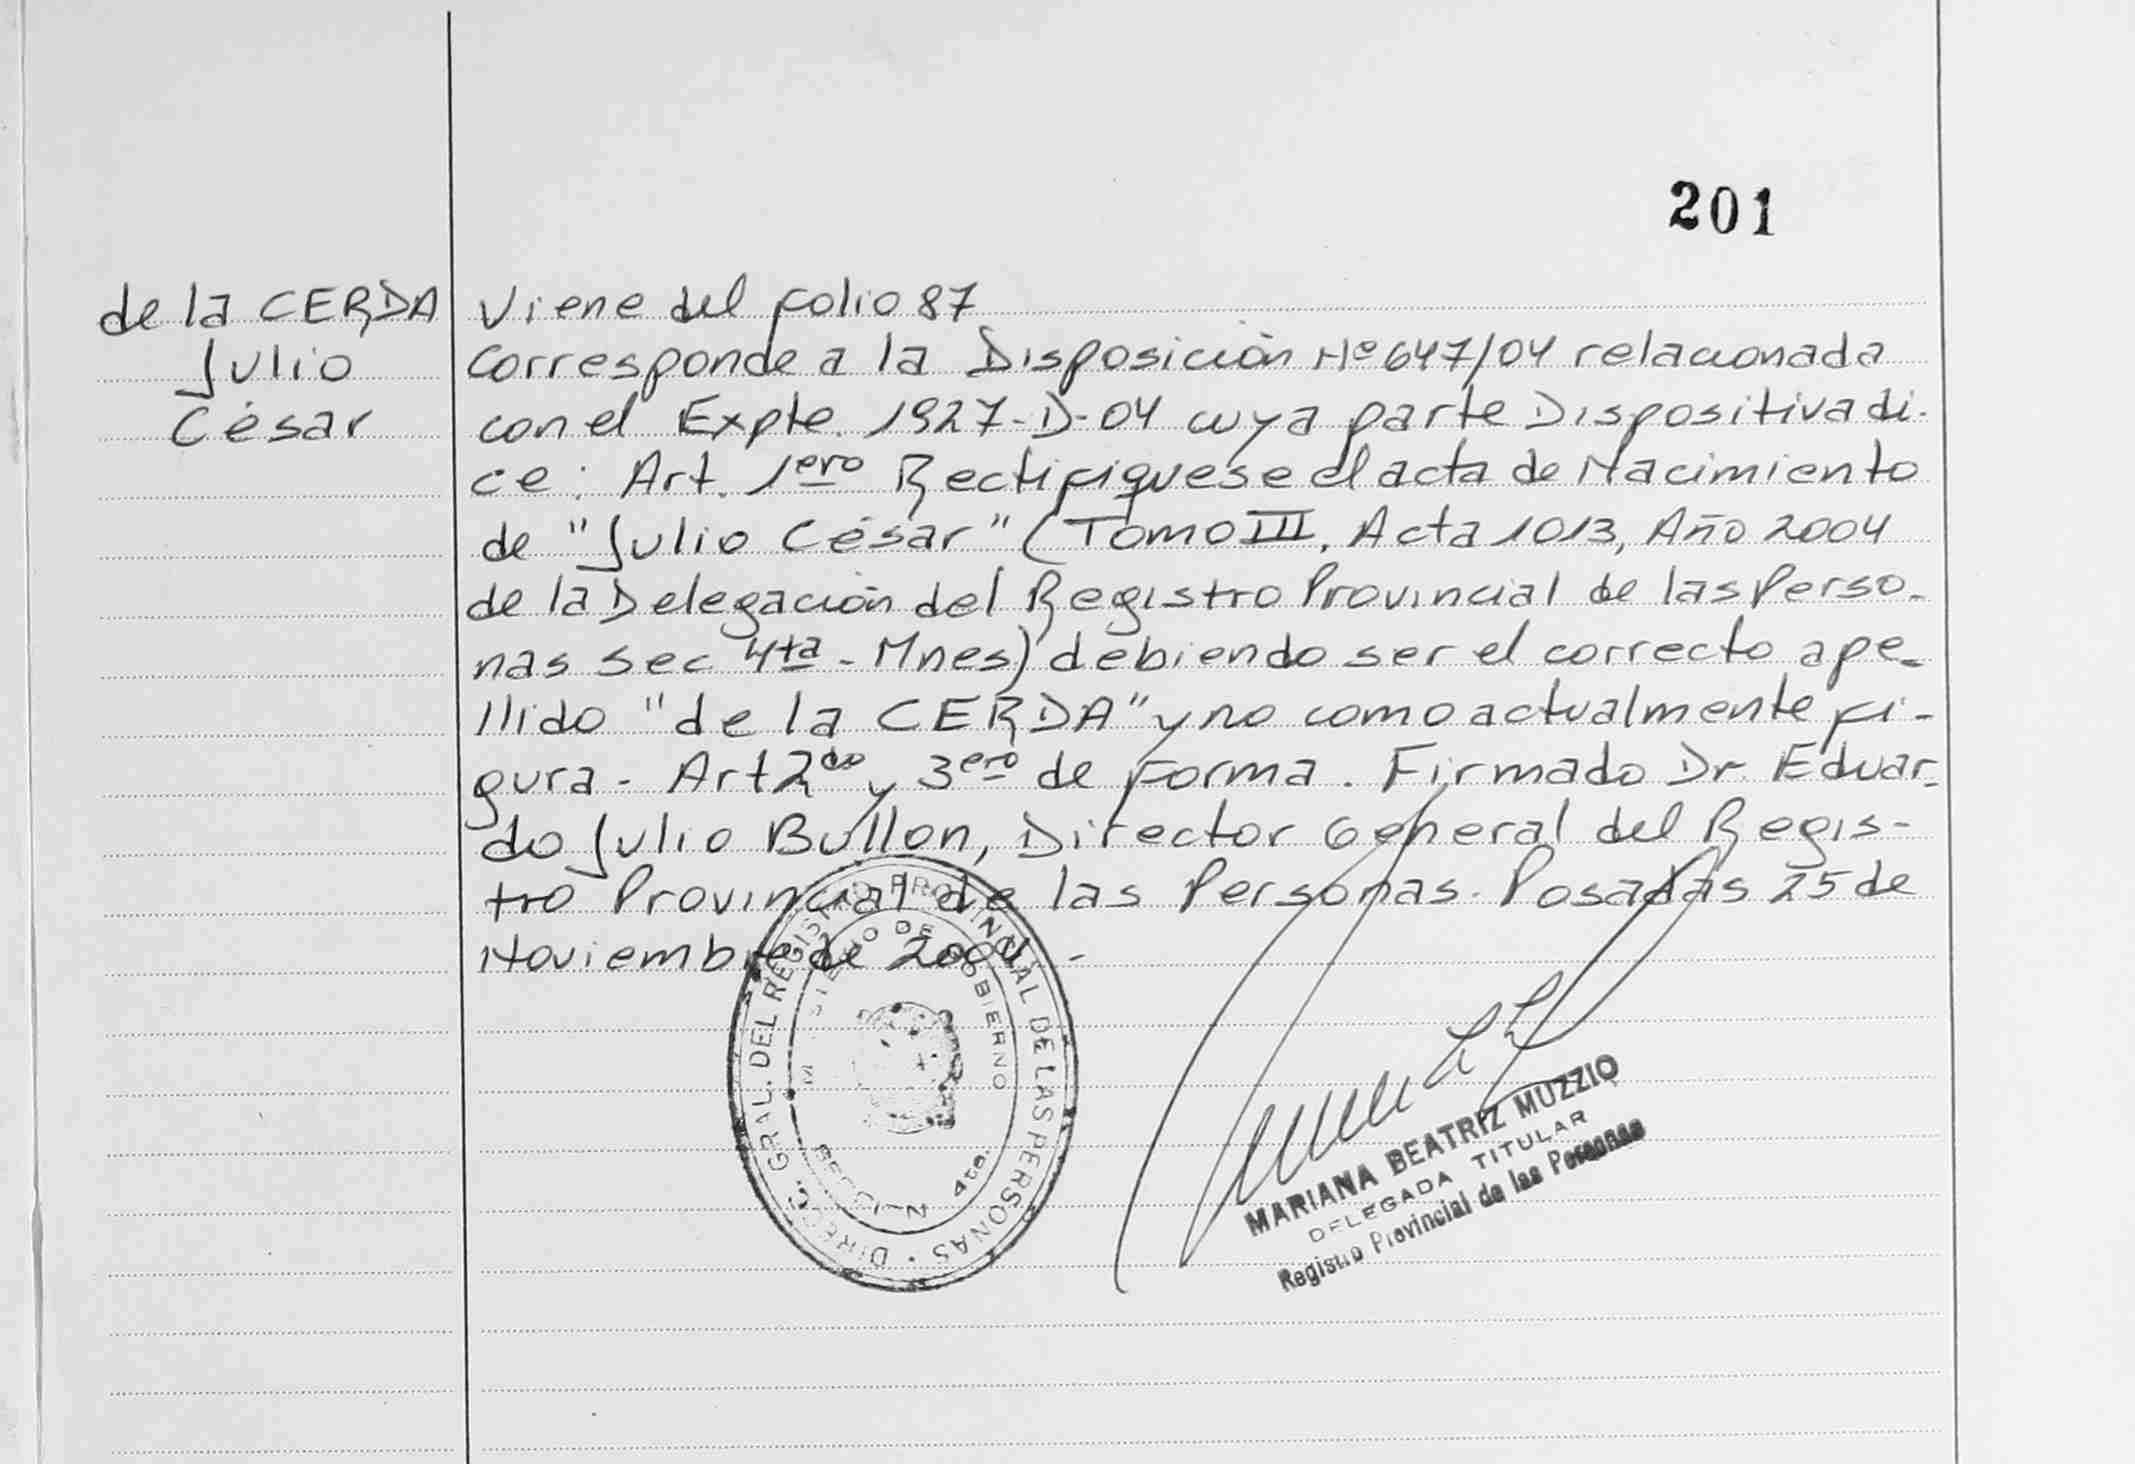 201
de la CERDA
Julio
César
Viene del folio 87
Corresponde a la Disposición Nº 647/04 relacionada
con el Expte. 1927-D-04 cuya parte Dispositiva di-
ce: Art. 1ero Rectifiquese el acta de Nacimiento
de "Julio César" (Tomo III, Acta 1013, Año 2004
de la Delegación del Registro Provincial de las Perso-
nas sec 4ta - Mnes) debiendo ser el correcto ape-
llido "de la CERDA" y no como actualmente fi-
gura - Art 2do y 3ero de Forma. Firmado Dr. Eduar-
do Julio Bullon, Director General del Regis-
tro Provincial de las Personas. Posadas 25 de
Noviembre de 2004. -
DIREC. GRAL. DEL REGISTRO PROVINCIAL DE LAS PERSONAS
DE GOBIERNO
4ta.
MARIANA BEATRIZ MUZZIO
DELEGADA TITULAR
Registro Provincial de las Personas